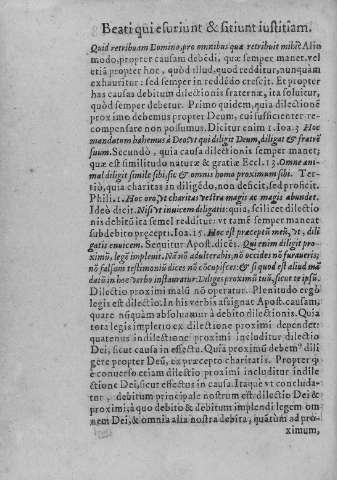 Beati qui esuriunt & sitiunt iustitiam.
Quid retribuam Domino, pro omnibus quæ retribuit mihi? Alio
modo, propter causam debēdi, quæ semper manet, vel
etiā propter hoc, quòd illud, quod redditur, nunquàm
exhauritur: sed semper in reddēdo crescit. Et propter
has causas debitum dilectionis fraternæ, ita soluitur,
quòd semper debetur. Primo quidem, quia dilectionē
proximo debemus propter Deum, cui sufficienter re-
compensare non possumus. Dicitur enim 1. Ioa. 3 Hoc
mandatum habemus à Deo, vt qui diligit Deum, diligat & fratrē
suum. Secundò, quia causa dilectionis semper manet,
quæ est similitudo naturæ & gratiæ Eccl. 13. Omne ani-
mal diligit simile sibi, sic & omnis homo proximum sibi. Ter-
tiò, quia charitas in diligēdo, non deficit, sed proficit.
Phili. 1. Hoc oro, vt charitas vestra magis ac magis abundet.
Ideò dicit. Nisi vt inuicem diligatis: quia, scilicet dilectio
nis debitū ita semel redditur: vt tamē semper maneat
sub debito præcepti. Ioa. 15. Hoc est præceptū meū, vt, dili
gatis enuicem. Sequitur Apost. dicēs. Qui enim diligit pro-
ximū, legē impleuit. Nā nō adulterabis, nō occides nō furaueris;
nō falsum testimoniū dices nō cōcupisces: & si quod est aliud mā
datū in hoc verbo instauratur. Diliges proximū tuū, sicut te ipsū.
Dilectio proximi malū nō operatur. Plenitudo ergo
legis est dilectio. In his verbis assignat Apost. causam,
quare nonquàm absoluimur à debito dilectionis. Quia
tota legis impletio ex dilectione proximi dependet:
quatenus indilectione proximi includitur dilectio
Dei, sicut causa in effectu. Quia proximū debem⁹ dili
gere propter Deū, ex præcepto charitatis. Propter q̄
è conuerso etiam dilectio proximi includitur indile
ctione Dei, sicut effectus in causa. Itaque vt concluda-
tur, debitum principale nostrum est dilectio Dei &
proximi, à quo debito & debitum implendi legem om
nem Dei, & omnia alia nostra debita, quātùm ad pro-
ximum,